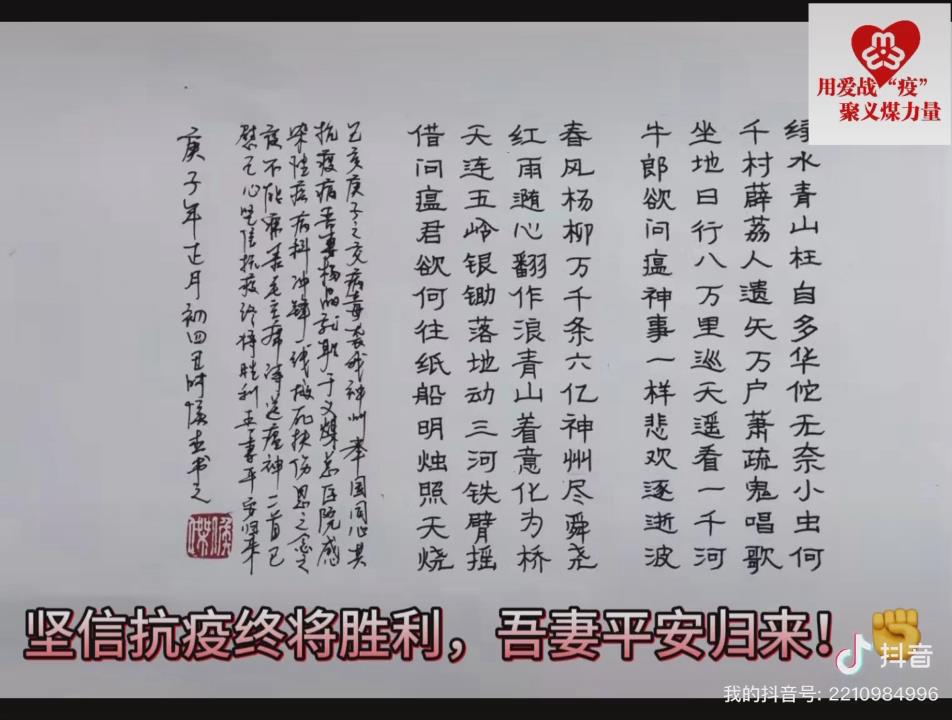 用爱战“疫”
聚义煤力量
绿水青山枉自多华佗无奈小虫何
千村薜荔人遗矢万户萧疏鬼唱歌
坐地日行八万里巡天遥看一千河
牛郎欲问瘟神事一样悲欢逐逝波
春风杨柳万千条六亿神州尽舜尧
红雨随心翻作浪青山着意化为桥
天连五岭银锄落地动三河铁臂摇
借问瘟君欲何往纸船明烛照天烧
己亥庚子之交病毒袭我神州举国同心共
抗疫病吾妻杨晶就职于义煤总医院感
染性疾病科冲锋一线救死扶伤思之念之
夜不能寐书毛主席诗送瘟神二首已
慰己心坚信抗疫终将胜利吾妻平安归来
庚子年正月初四丑时侯杰书之
坚信抗疫终将胜利，吾妻平安归来！✊
抖音
我的抖音号: 2210984996